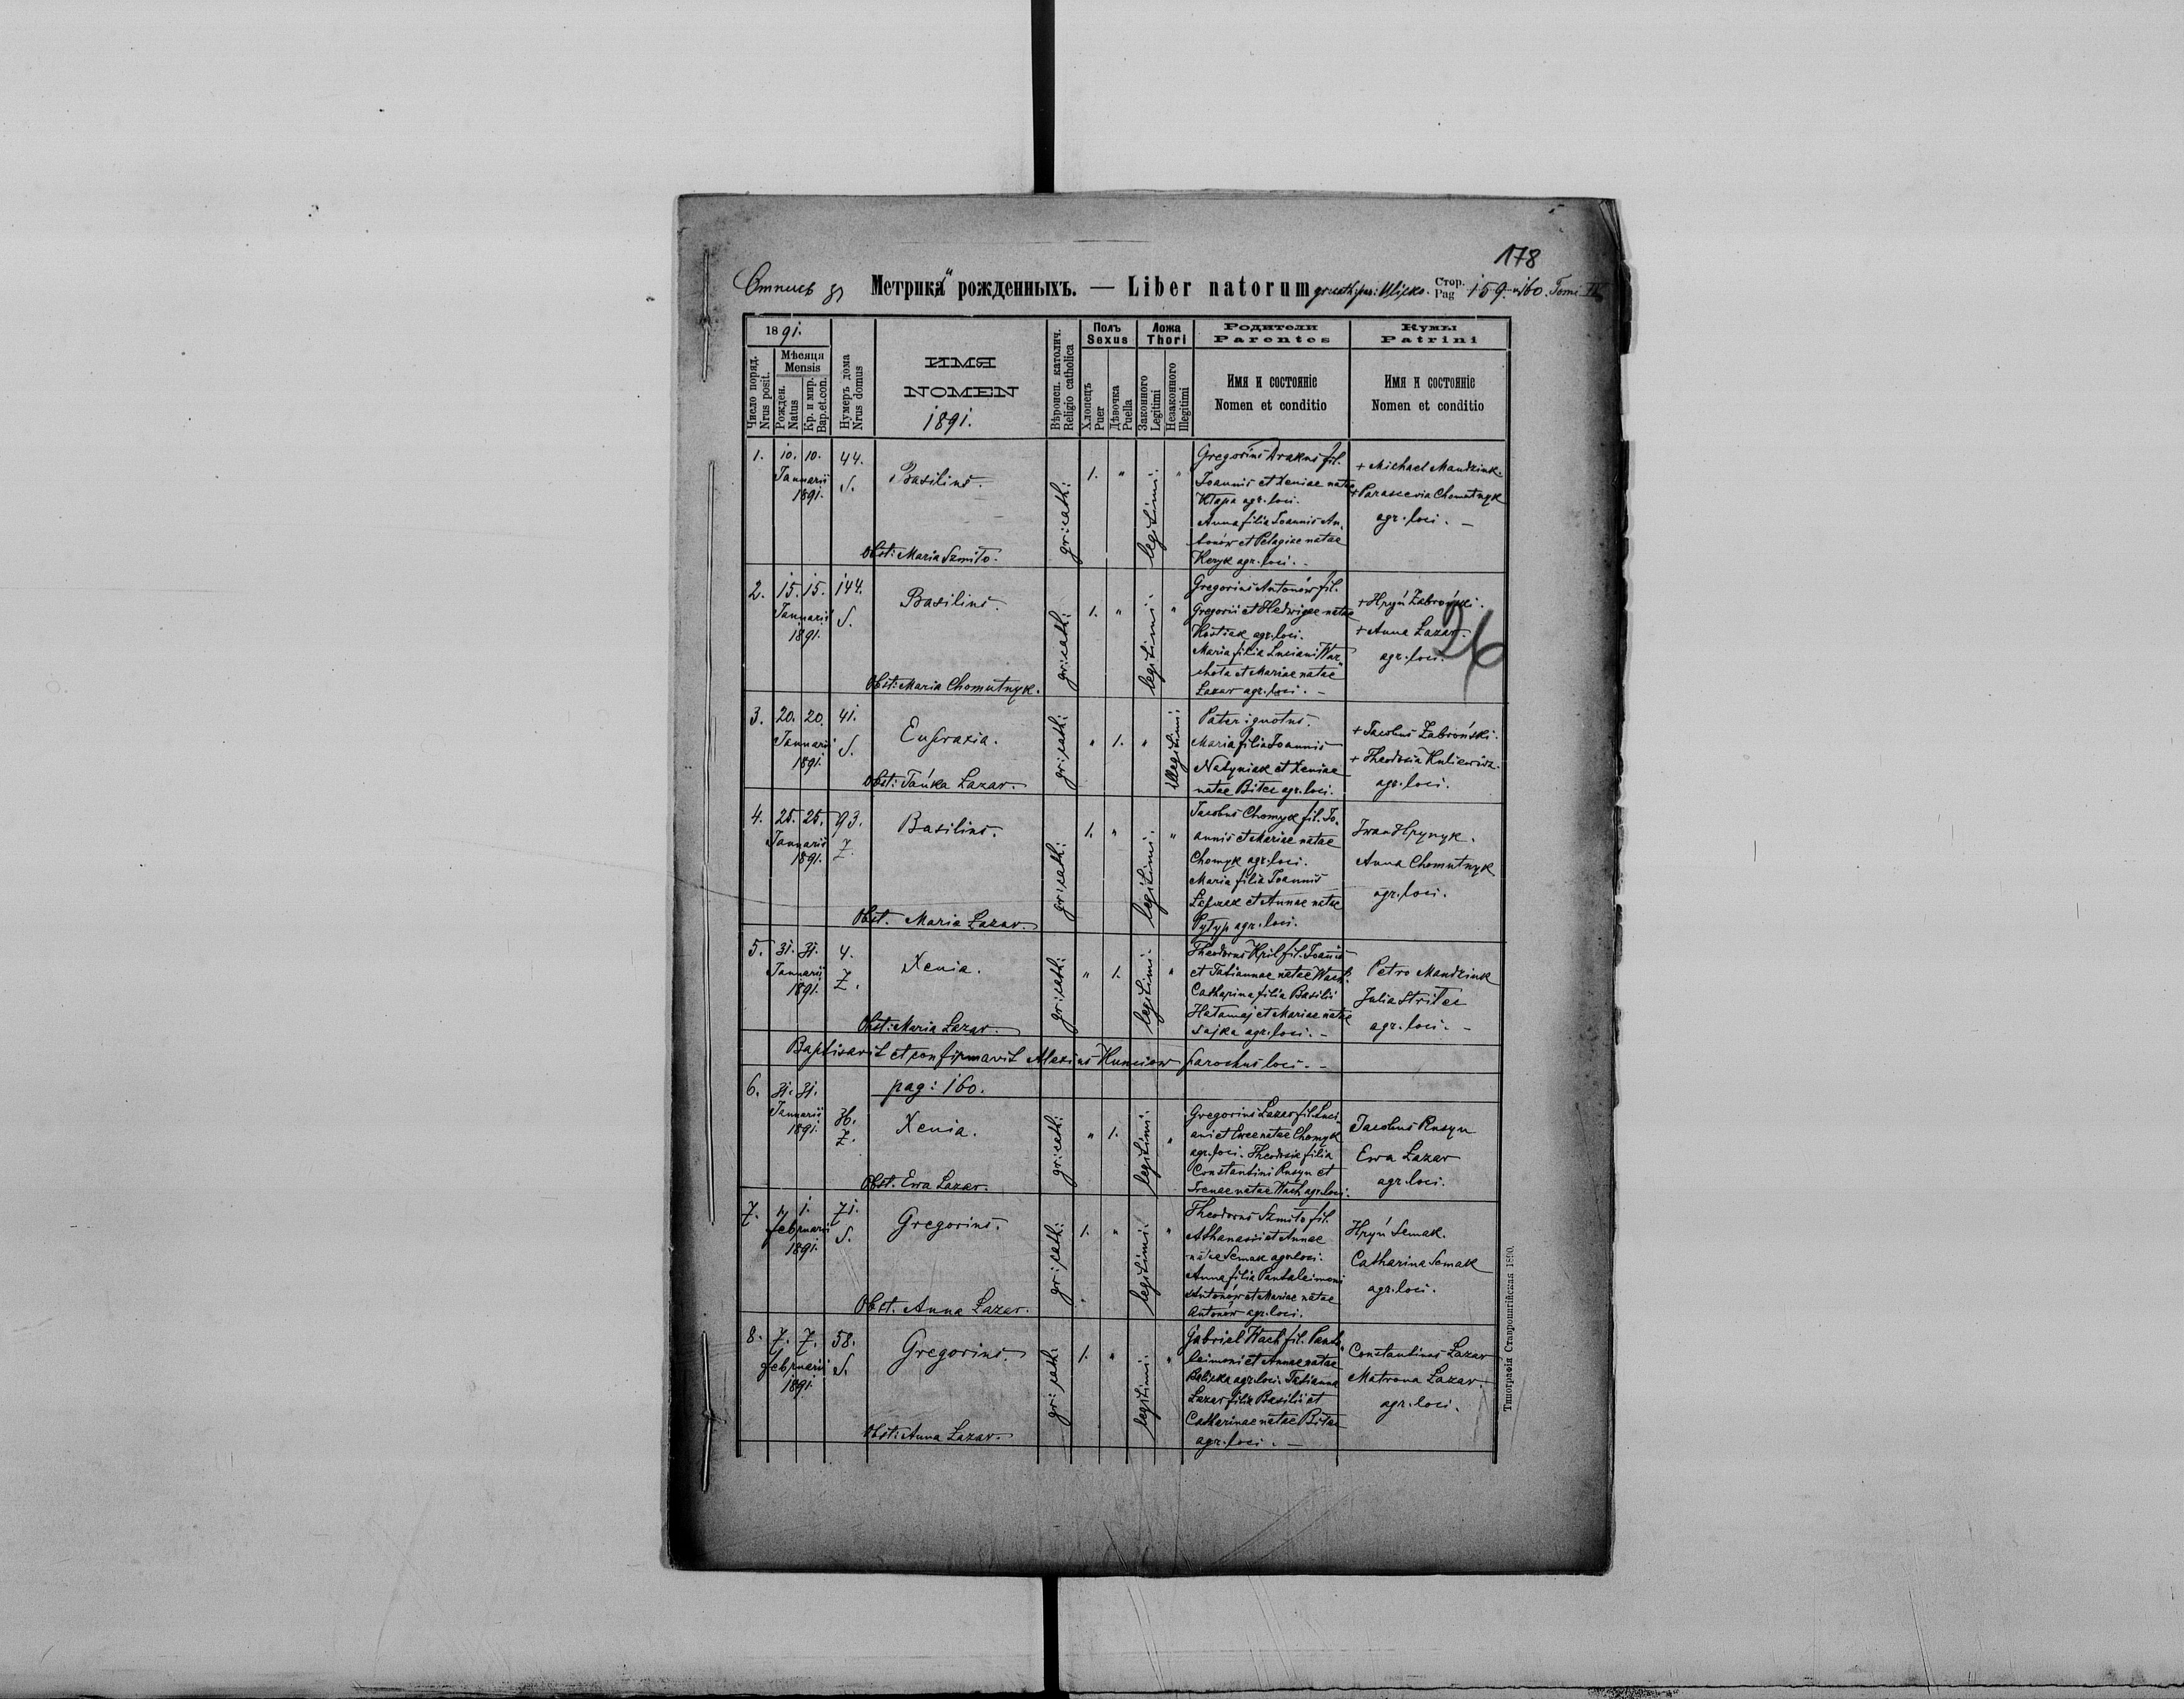 178
Метрика рожденныхъ. — Liber natorum gr: cath: Стор. Pag 159. 160. Tomi
1891.
Число поряд. Nrus posit.
Мѣсяця Mensis
Рожден. Natus
Кр. и мир. Bap. et con.
Нумеръ дома Nrus domus
ИМЯ
NOMEN
1891.
Вѣроисп. католич. Religio catholica
Полъ Sexus
Хлопецъ Puer
Дѣвочка Puella
Ложа Thori
Законного Legitimi
Незаконного Illegitimi
Родители
Parentes
Имя и состоянiе
Nomen et conditio
Кумы
Patrini
Имя и состоянiе
Nomen et conditio
1. 10. 10. Januarii 1891. 44. S.
Basilius.
Obst: Maria Szmiło.
gr: cath: 1. " legitimi. "
Gregorius fil.
Joannis et Xeniae natae
agr. loci.
Anna filia Joannis An-
tonów et Pelagiae natae
agr. loci. -
+ Michael Mandziuk.
+ Parascevia Chomutnyk
agr. loci. -
2. 15. 15. Januarii 1891. 144. S.
Basilius.
Obst: Maria Chomutnyk.
gr: cath: 1. " legitimi. "
Gregorius Antonów fil.
Gregorii et Hedwigae natae
Kostiak agr. loci.
Maria filia Luciani War-
choła et Mariae natae
Lazar agr. loci. -
+ Hryń Zabroński.
+ Anna Lazar.
agr. loci.
26
3. 20. 20. Januarii 1891. 41. S.
Eufrazia.
Obst: Tańka Lazar.
gr: cath: " 1. " illegitimi.
Pater ignotus.
Maria filia Joannis
Natyniak et Xeniae
natae Bitec agr. loci.
+ Jacobus Zabroński.
+ Theodosia Kulikewicz.
agr. loci.
4. 25. 25. Januarii 1891. 93. Z.
Basilius.
Obst. Maria Lazar.
gr: cath: 1. " legitimi. "
Jacobus Chomyk fil. Jo-
annis et Mariae natae
Chomyk agr. loci.
Maria filia Joannis
et Annae natae
Pyłyp agr. loci.
Iwan Hrynyk.
Anna Chomutnyk
agr. loci.
5. 31. 31. Januarii 1891. 4. Z.
Xenia.
Obst: Maria Lazar.
gr: cath: " 1. legitimi. "
Theodorus Kril fil. Joannis
et Tatiannae natae Wach.
Catharina filia Basilii
Hałamaj et Mariae natae
Sajka agr. loci. -
Petro Mandziuk
Julia Striłec
agr. loci. -
Baptisavit et confirmavit Alexius Kunciow parochus loci. -
pag: 160.
6. 31. 31. Januarii 1891. 36. Z.
Xenia.
Obst. Ewa Lazar.
gr: cath: " 1. legitimi. "
Gregorius Lazar fil. Luci-
ani et Evae natae Chomyk
agr. loci. Theodosia filia
Constantini Rusyn et
Irenae natae Wach agr. loci.
Jacobus Rusyn
Ewa Lazar
agr. loci.
7. 1. 1. februarii 1891. 71. S.
Gregorius.
Obst. Anna Lazar.
gr: cath: 1. " legitimi. "
Theodorus Szmiło fil.
Athanasii et Annae
natae Semak agr. loci.
Anna filia Pantaleimoni
Antonów et Mariae natae
Antonów agr. loci.
Hryń Semak.
Catharina Semak
agr. loci.
8. 7. 7. februarii 1891. 58. S.
Gregorius.
Obst: Anna Lazar.
gr: cath: 1. " legitimi. "
Gabriel Wach fil. Panta-
leimoni et Annae natae
agr. loci. Tatianna
Lazar filia Basilii et
Catharinae natae Bitec
agr. loci. -
Constantinus Lazar
Matrona Lazar.
agr. loci.
Типографія Ставропигійская 1890.